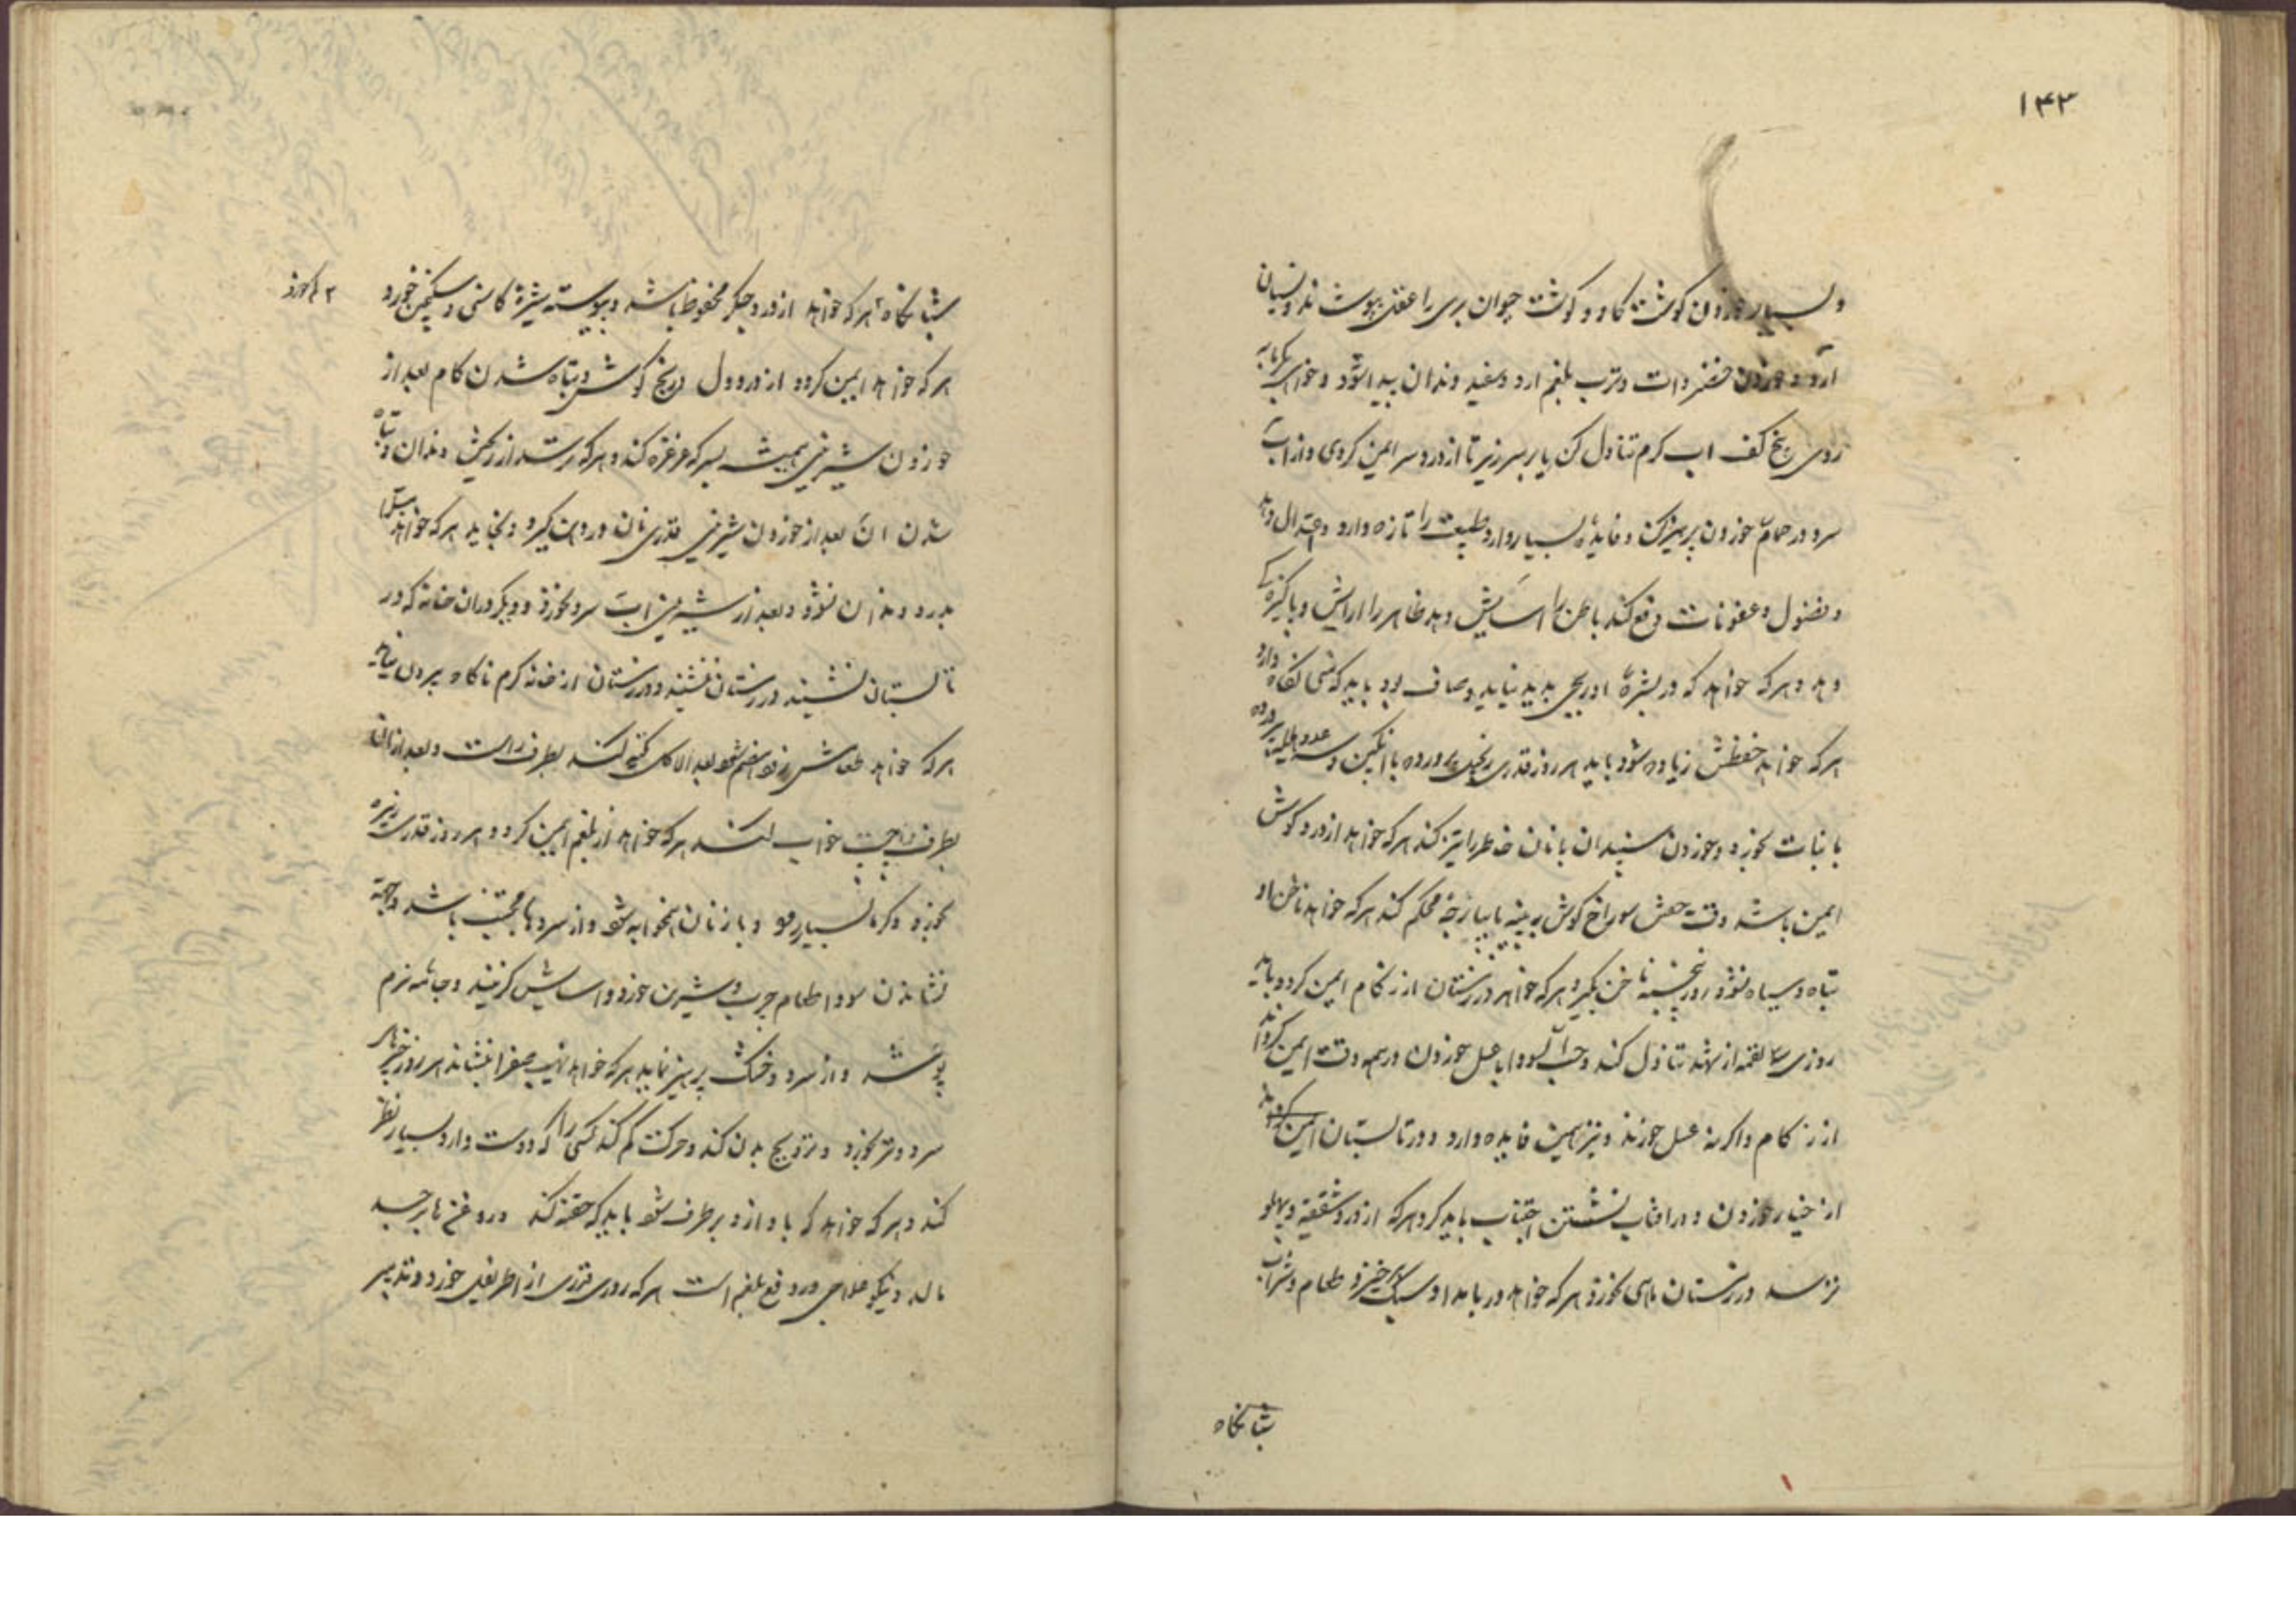 ۱۴۳
و بسیار خوردن کوشت کاو و کوشت حیوان بری را عقل بپوشاند و نسیان
آرد و خوردن و ترب بلغم ارد و سفید دندان پیدا شود و
روی پنج کف اب کرم تناول کن یا بر سر ریز تا از درد سر ایمن کردی و از اب
سرد در حمام خوردن پرهیز کن و فایده بسیار دارد طبیعت را تازه دارد و اعتدال دهد
و فضول و عفونات دفع کند باطن را اسایش دهد ظاهر را ارایش و پاکیزه کی
دهد و هر که خواهد که در بشرهٔ او پدید نیاید و صاف بود باید که نکاه دارد
هر که خواهد حفظش زیاده شود باید هر روز قدری زنجبیل پرورده با انکبین و سه عدد هلیلهٔ پرورده
با نبات بخورد و خوردن سپندان با نان خاطر را تیز کند هر که خواهد از درد کوش
ایمن باشد وقت خفتن سوراخ کوش به پنبه یا پارچهٔ محکم کند هر که خواهد ناخن او
تباه و سیاه نشود روز پنجشنبه ناخن بکیرد و هر که خواهد در زمستان از زکام ایمن کردد باید
روزی سه لقمه از شهد تناول کند و حب السودا با عسل خوردن در همه وقت ایمن کرداند
از زکام و اکر نه عسل خورند و نیز همین فایده دارد و در تابستان ایمن کرداند
از خیار خوردن و در افتاب نشستن اجتناب باید کرد و هر که از درد شقیقه و پهلو
ترسد در زمستان ماهی بخورد و هر که خواهد در بامداد سبک بر خیزد طعام و شراب
شبانکاه
شبانکاه هر که خواهد از درد جکر محفوظ باشد و پیوسته شیرهٔ کاسنی و سکنجبین خورد
هر که خواهد ایمن کردد از درد دل و رنج کوش و تباه شدن کام بعد از
خوردن شیرینی همیشه بسرکه غرغره کند و هر که ترسد از رنجش دندان و تباه
شدن ان بعد از خوردن شیرینی قدری نان در دهن کیرد و بخاید هر که خواهد مبتلا
بدرد دندان نشود و بعد از شیرینی اب سرد نخورد و دیکر در ان خانه که در
تابستان نشیند در زمستان ننشیند و در زمستان از خانه کرم ناکاه بیرون نیاید
هر که خواهد طعامش زود هضم شود بعد الاکل تکیه کند بطرف راست و بعد از ان
بطرف چپ خواب کند هر که خواهد از بلغم ایمن کردد هر روز قدری زیره
بخورد و کرمابه بسیار رود و با زنان همخوابه شود و از سردیها مجتنب باشد و بجهة
نشاندن سودا طعام چرب و شیرین خورد و اسایش کزیند و جامه نرم
پوشد و از سرد و خشک پرهیز نماید هر که خواهد لهیب صفرا بنشاند هر روز چیزهای
سرد و تر بخورد و ترویح بدن کند و حرکت کم کند کسی را که دوست دارد بسیار نظر
کند و هر که خواهد که باد از و بر طرف شود باید که حقنه کند و روغنها بر جسد
مالد و نیکو علاجی در دفع بلغم است هر که روزی قدری از اطریفل خورد و تدبیر